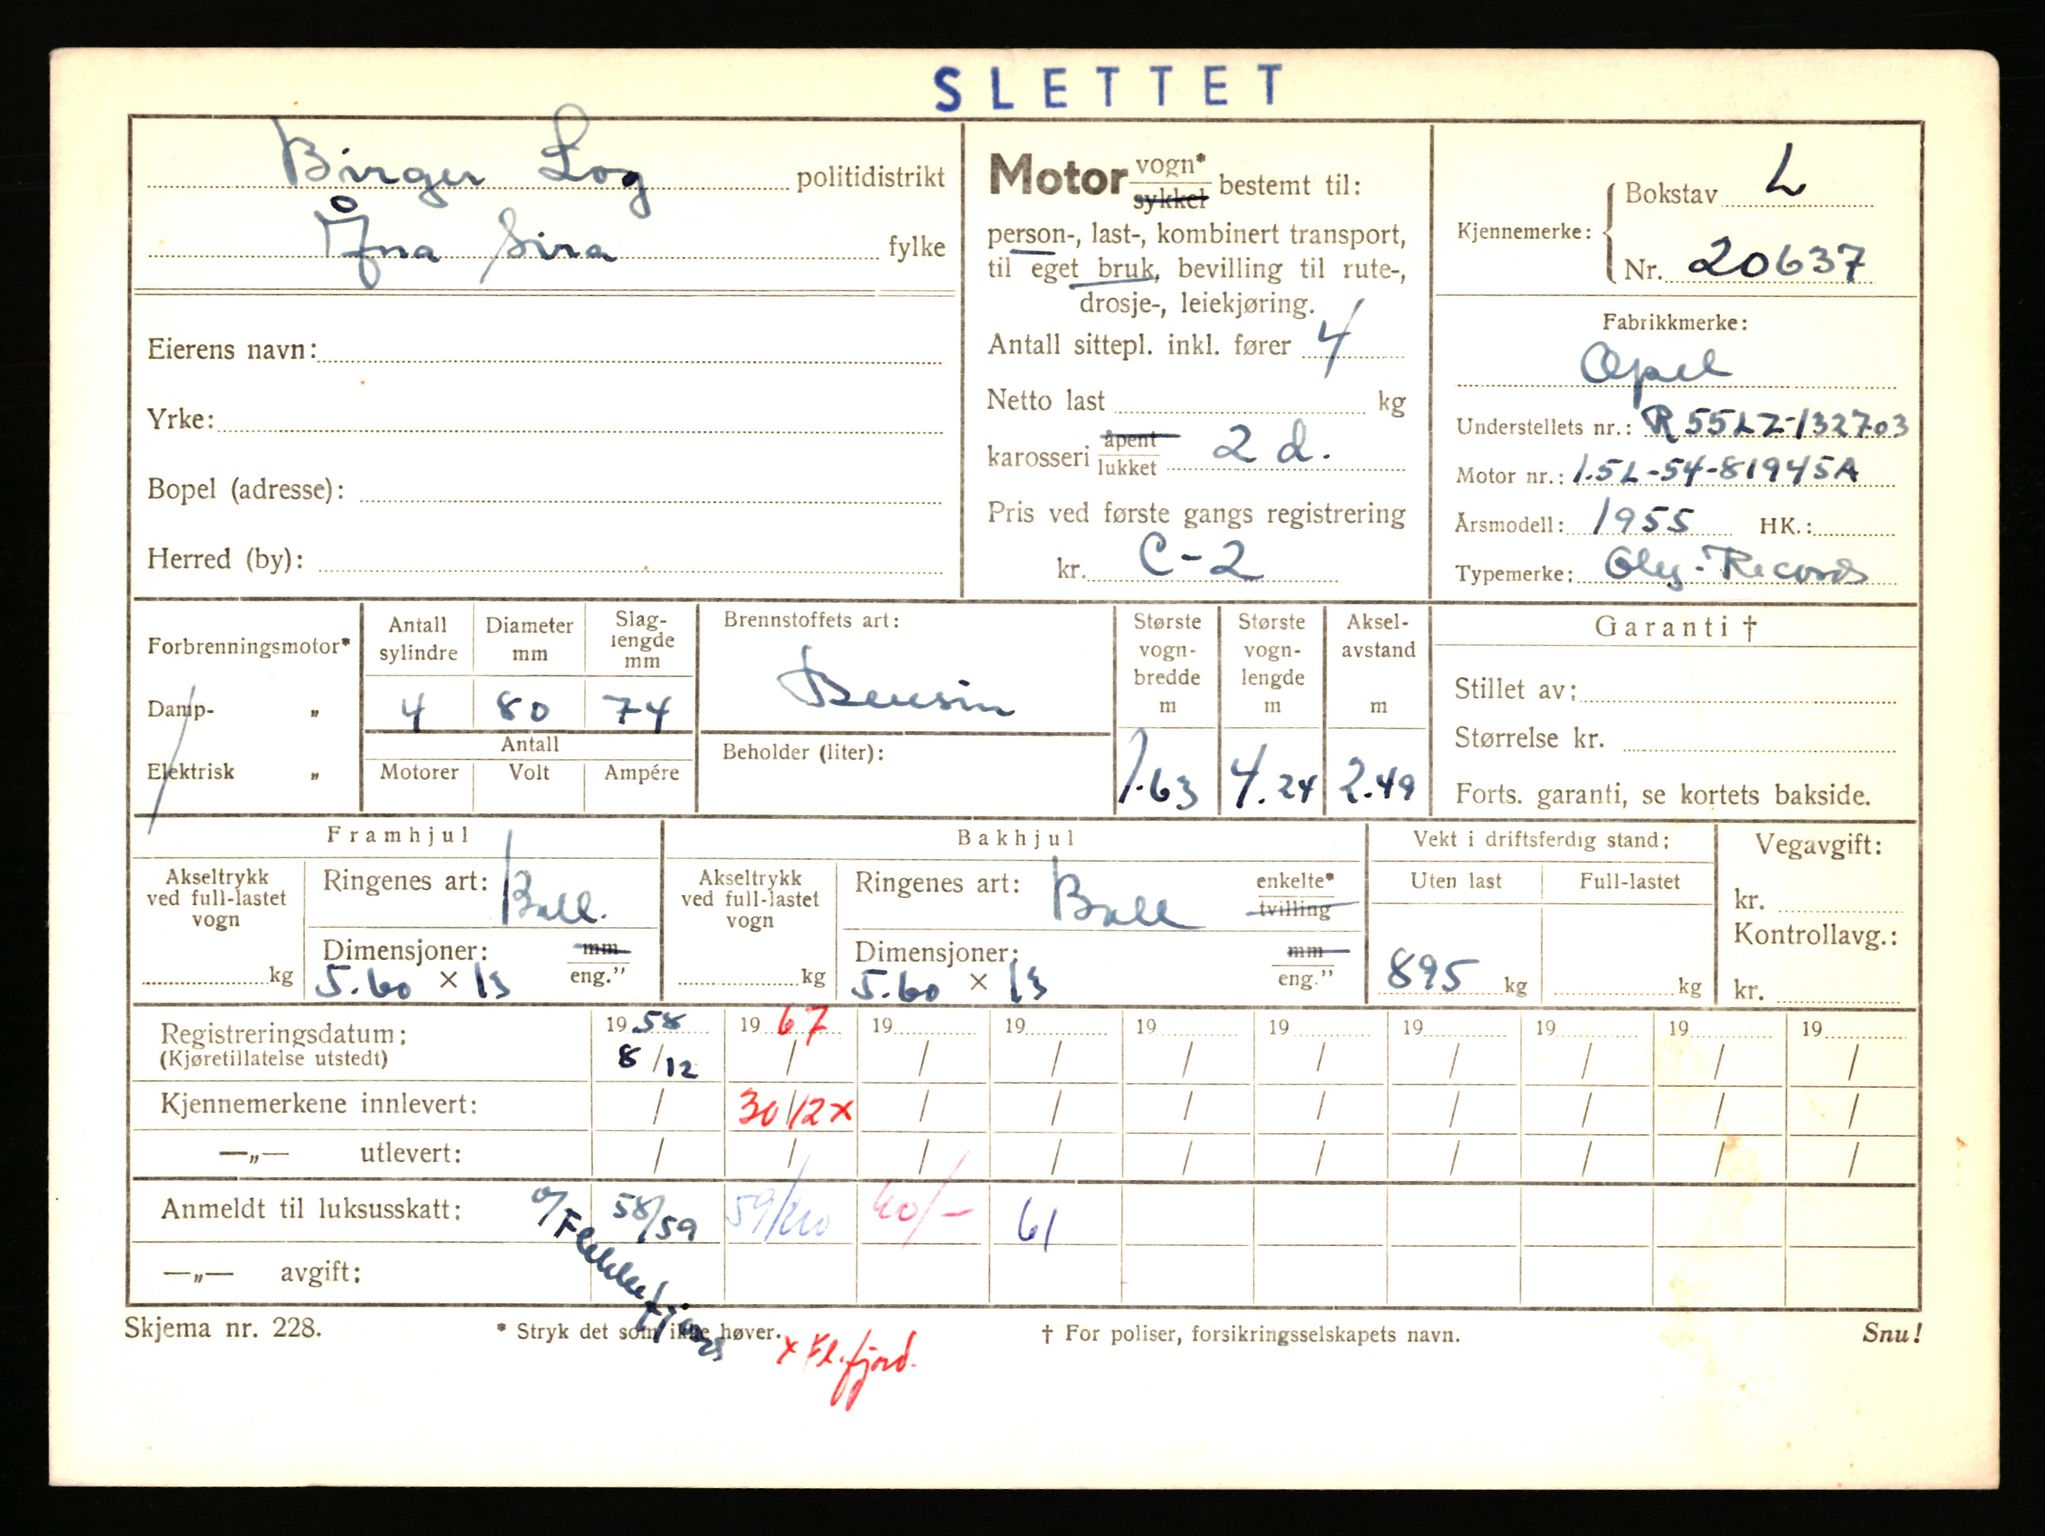 SLETTET
Birger Log politidistrikt
Åna Sira fylke
Eierens navn:
Yrke:
Bopel (adresse):
Herred (by):
Motor vogn* sykkel bestemt til:
person-, last-, kombinert transport,
til eget bruk, bevilling til rute-,
drosje-, leiekjøring.
Antall sittepl. inkl. fører 4
Netto last kg
karosseri åpent lukket 2 d.
Pris ved første gangs registrering
kr. C-2
Kjennemerke: Bokstav L
Nr. 20637
Fabrikkmerke:
Opel
Understellets nr.: R55LZ-132703
Motor nr.: 1.5L-54-81945A
Årsmodell: 1955 HK.:
Typemerke: Oly-Record
Forbrenningsmotor*
Damp- „
Elektrisk „
Antall sylindre
Diameter mm
Slag-lengde mm
4 80 74
Antall
Motorer Volt Ampére
Brennstoffets art:
Bensin
Beholder (liter):
Største vogn-bredde m
1.63
Største vogn-lengde m
4.24
Aksel-avstand m
2.49
Garanti †
Stillet av:
Størrelse kr.
Forts. garanti, se kortets bakside.
Framhjul
Akseltrykk ved full-lastet vogn
kg
Ringenes art: Ball.
Dimensjoner: mm
5.60 × 13 eng.”
Bakhjul
Akseltrykk ved full-lastet vogn
kg
Ringenes art: Ball enkelte* tvilling
Dimensjoner: mm
5.60 × 13 eng.”
Vekt i driftsferdig stand:
Uten last Full-lastet
895 kg kg
Vegavgift:
kr.
Kontrollavg.:
kr.
Registreringsdatum: 19 58 19 67 19 19 19 19 19 19 19 19
(Kjøretillatelse utstedt) 8/12 / / / / / / / / /
Kjennemerkene innlevert: / 30/12x / / / / / / / /
—„— utlevert: / / / / / / / / / /
Anmeldt til luksusskatt: o/ Flekkefjord 58/59 59/60 60/- 61
—„— avgift:
Skjema nr. 228. * Stryk det som ikke høver. † For poliser, forsikringsselskapets navn. Snu!
x Fl.fjord.